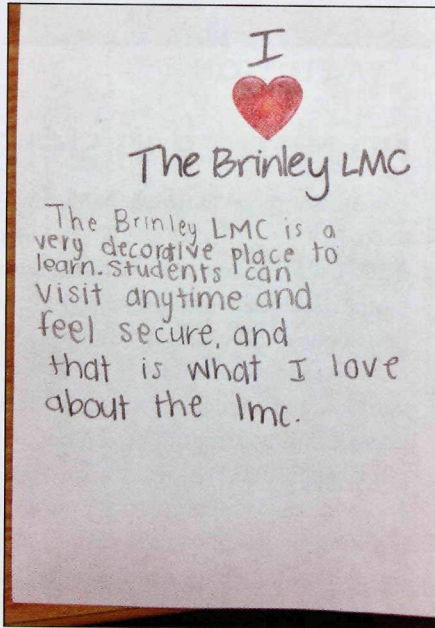 I
The Brinley LMC
The Brinley LMC is a
very decorative place to
learn. Students can
visit anytime and
feel secure, and
that is what I love
about the lmc.